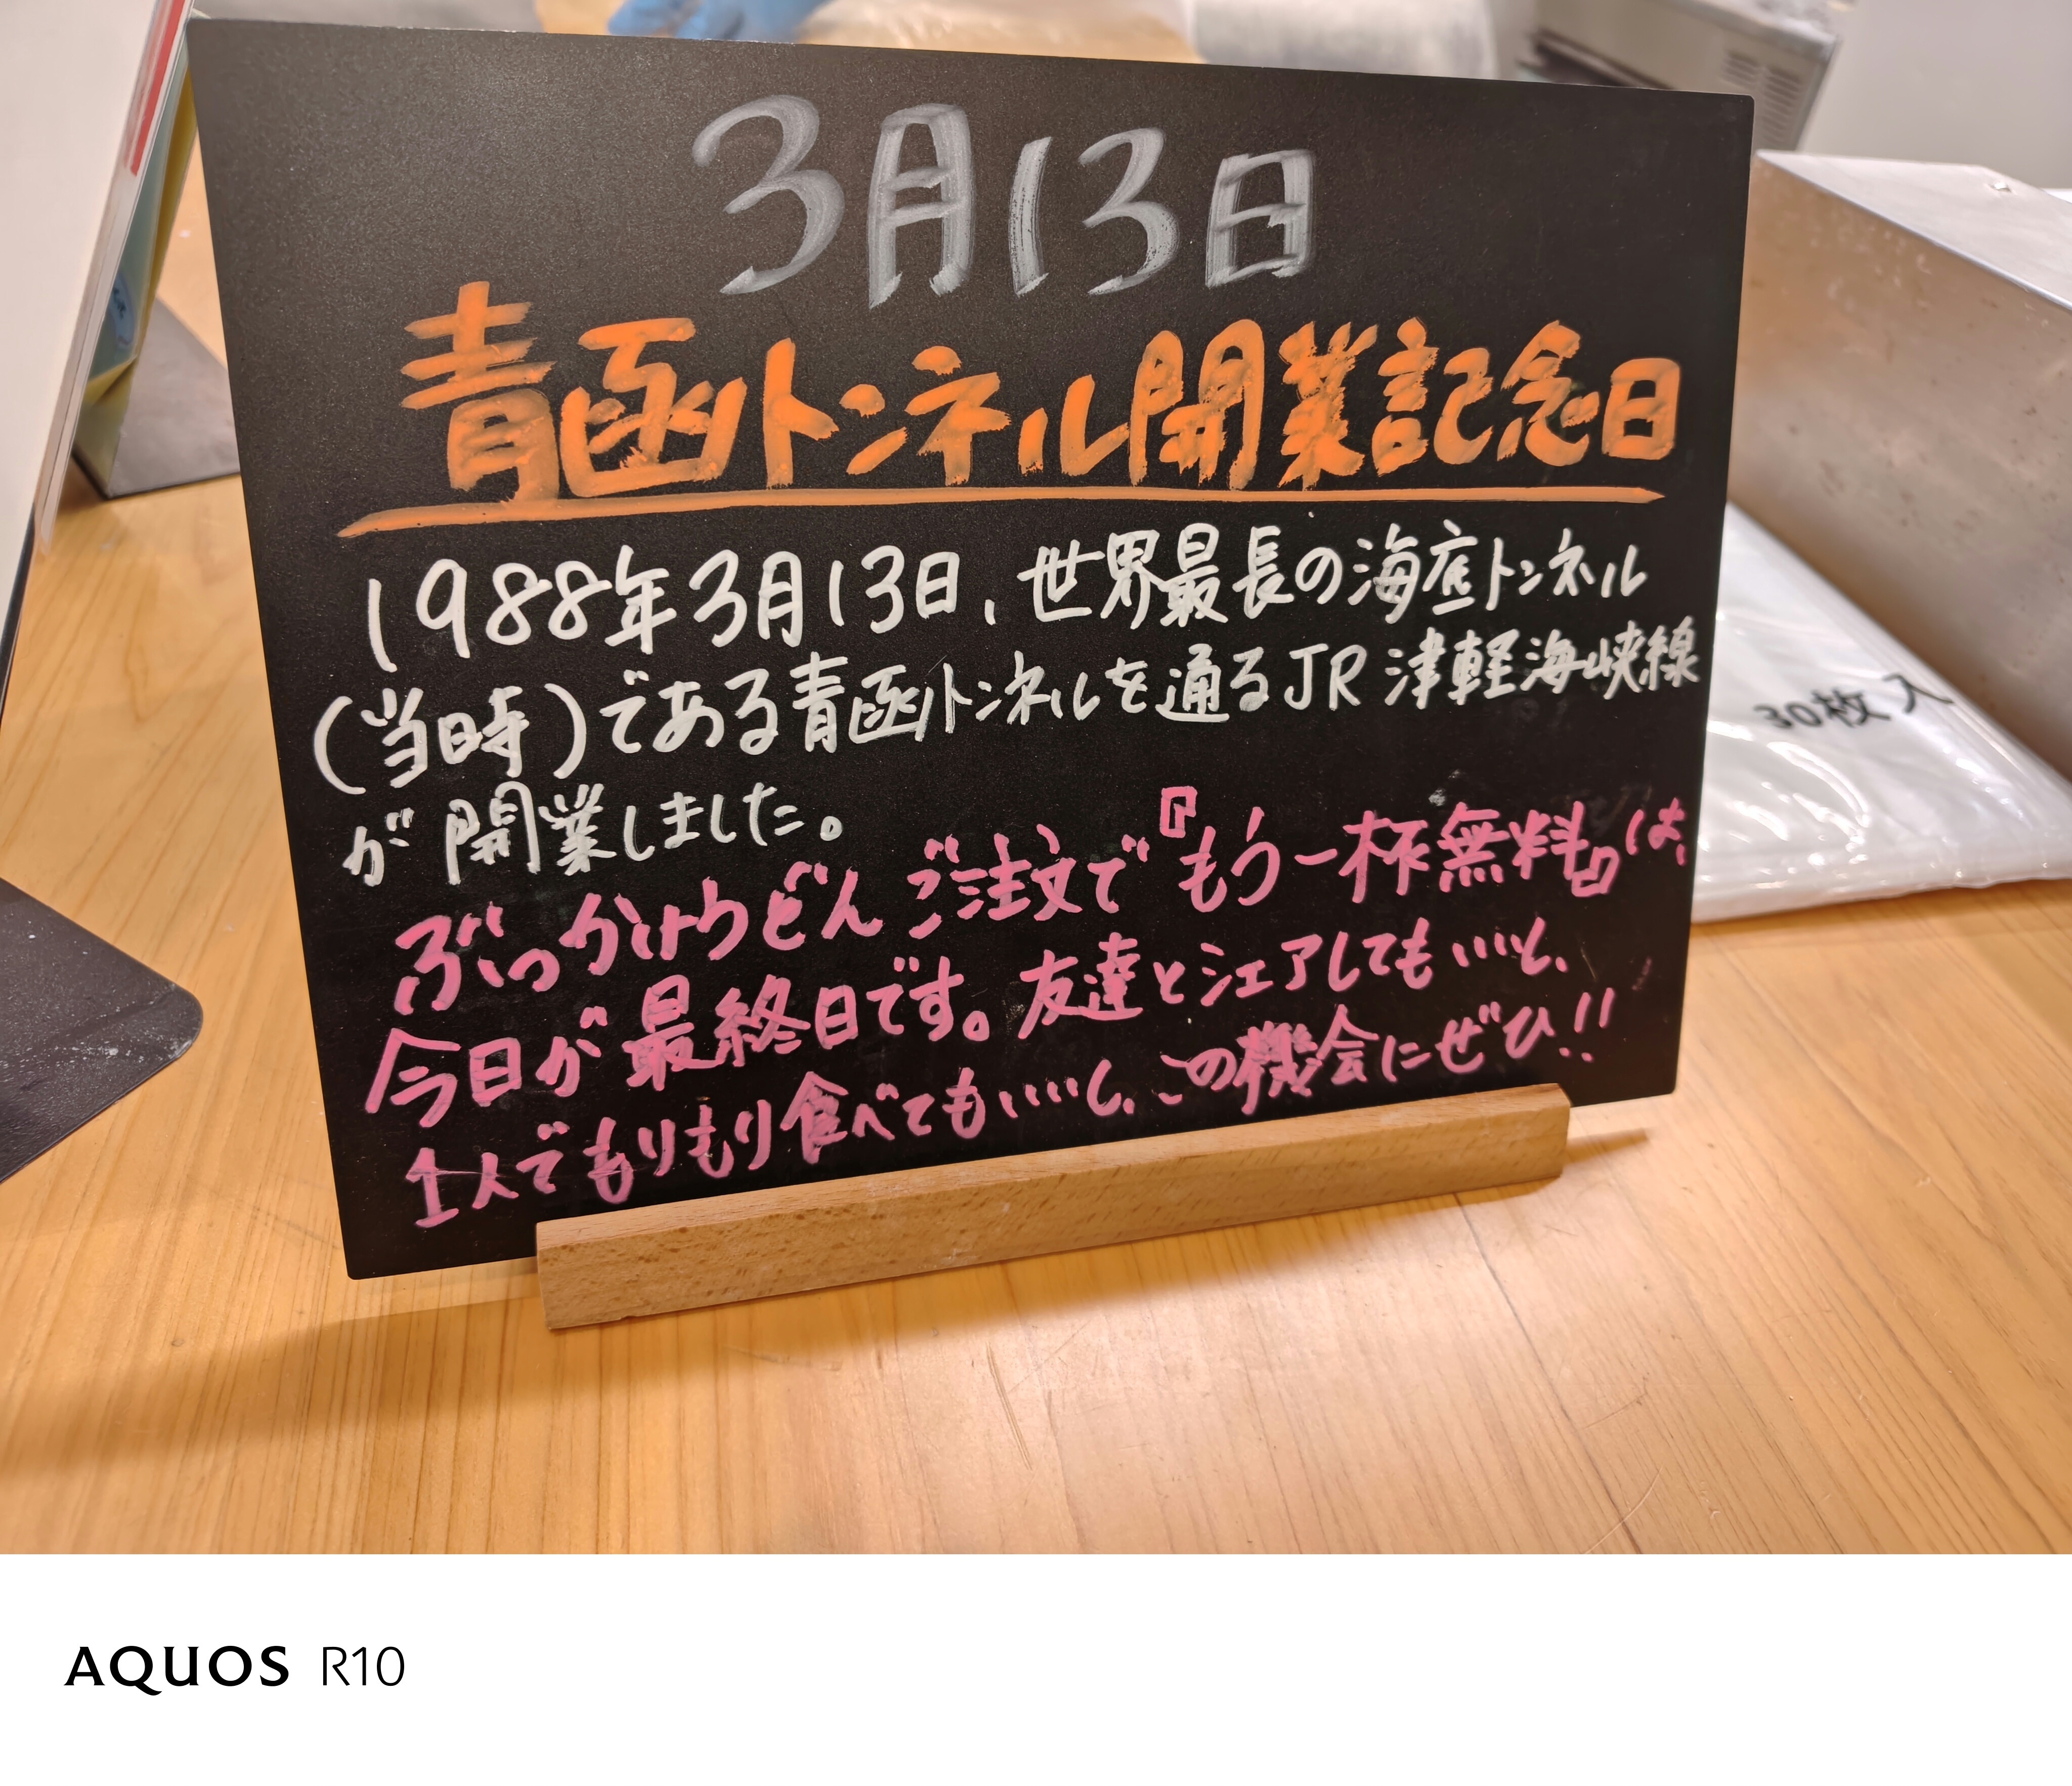 3月13日
青函トンネル開業記念日
1988年3月13日、世界最長の海底トンネル
(当時)である青函トンネルを通るJR津軽海峡線
が開業しました。
ぶっかけうどんご注文で『もう一杯無料』は、
今日が最終日です。友達とシェアしてもいいし、
1人でもりもり食べてもいいし、この機会にぜひ!!
30枚入
AQUOS R10